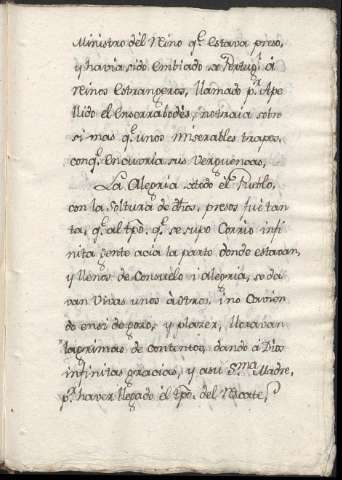 Ministro del Reino q.e estava preso,
y havia sido Embiado de Portug.l à
Reinos Estrangeros, llamado p.r Ape
llido el Enserrabodes, no traia sobre
si mas q.e unos miserables trapos,
con q.e Encubria sus Verguensas,
La Alegria de todo el Pueblo,
con la Soltura de d̃hos, presos fuè tan
ta, q.e al tpõ. q.e se supo Corrio infi
nita gente acia la parte donde estavan,
y llenos de Consuelo i alegria, se da
van Vivas unos à otros, i no Cavien
do en si de gozo, y plazer, lloravan
lagrimas de contentos, dando á Dios
infinitas gracias, y a su S.ma Madre,
p.r haver llegado el tpõ. del Rescate,